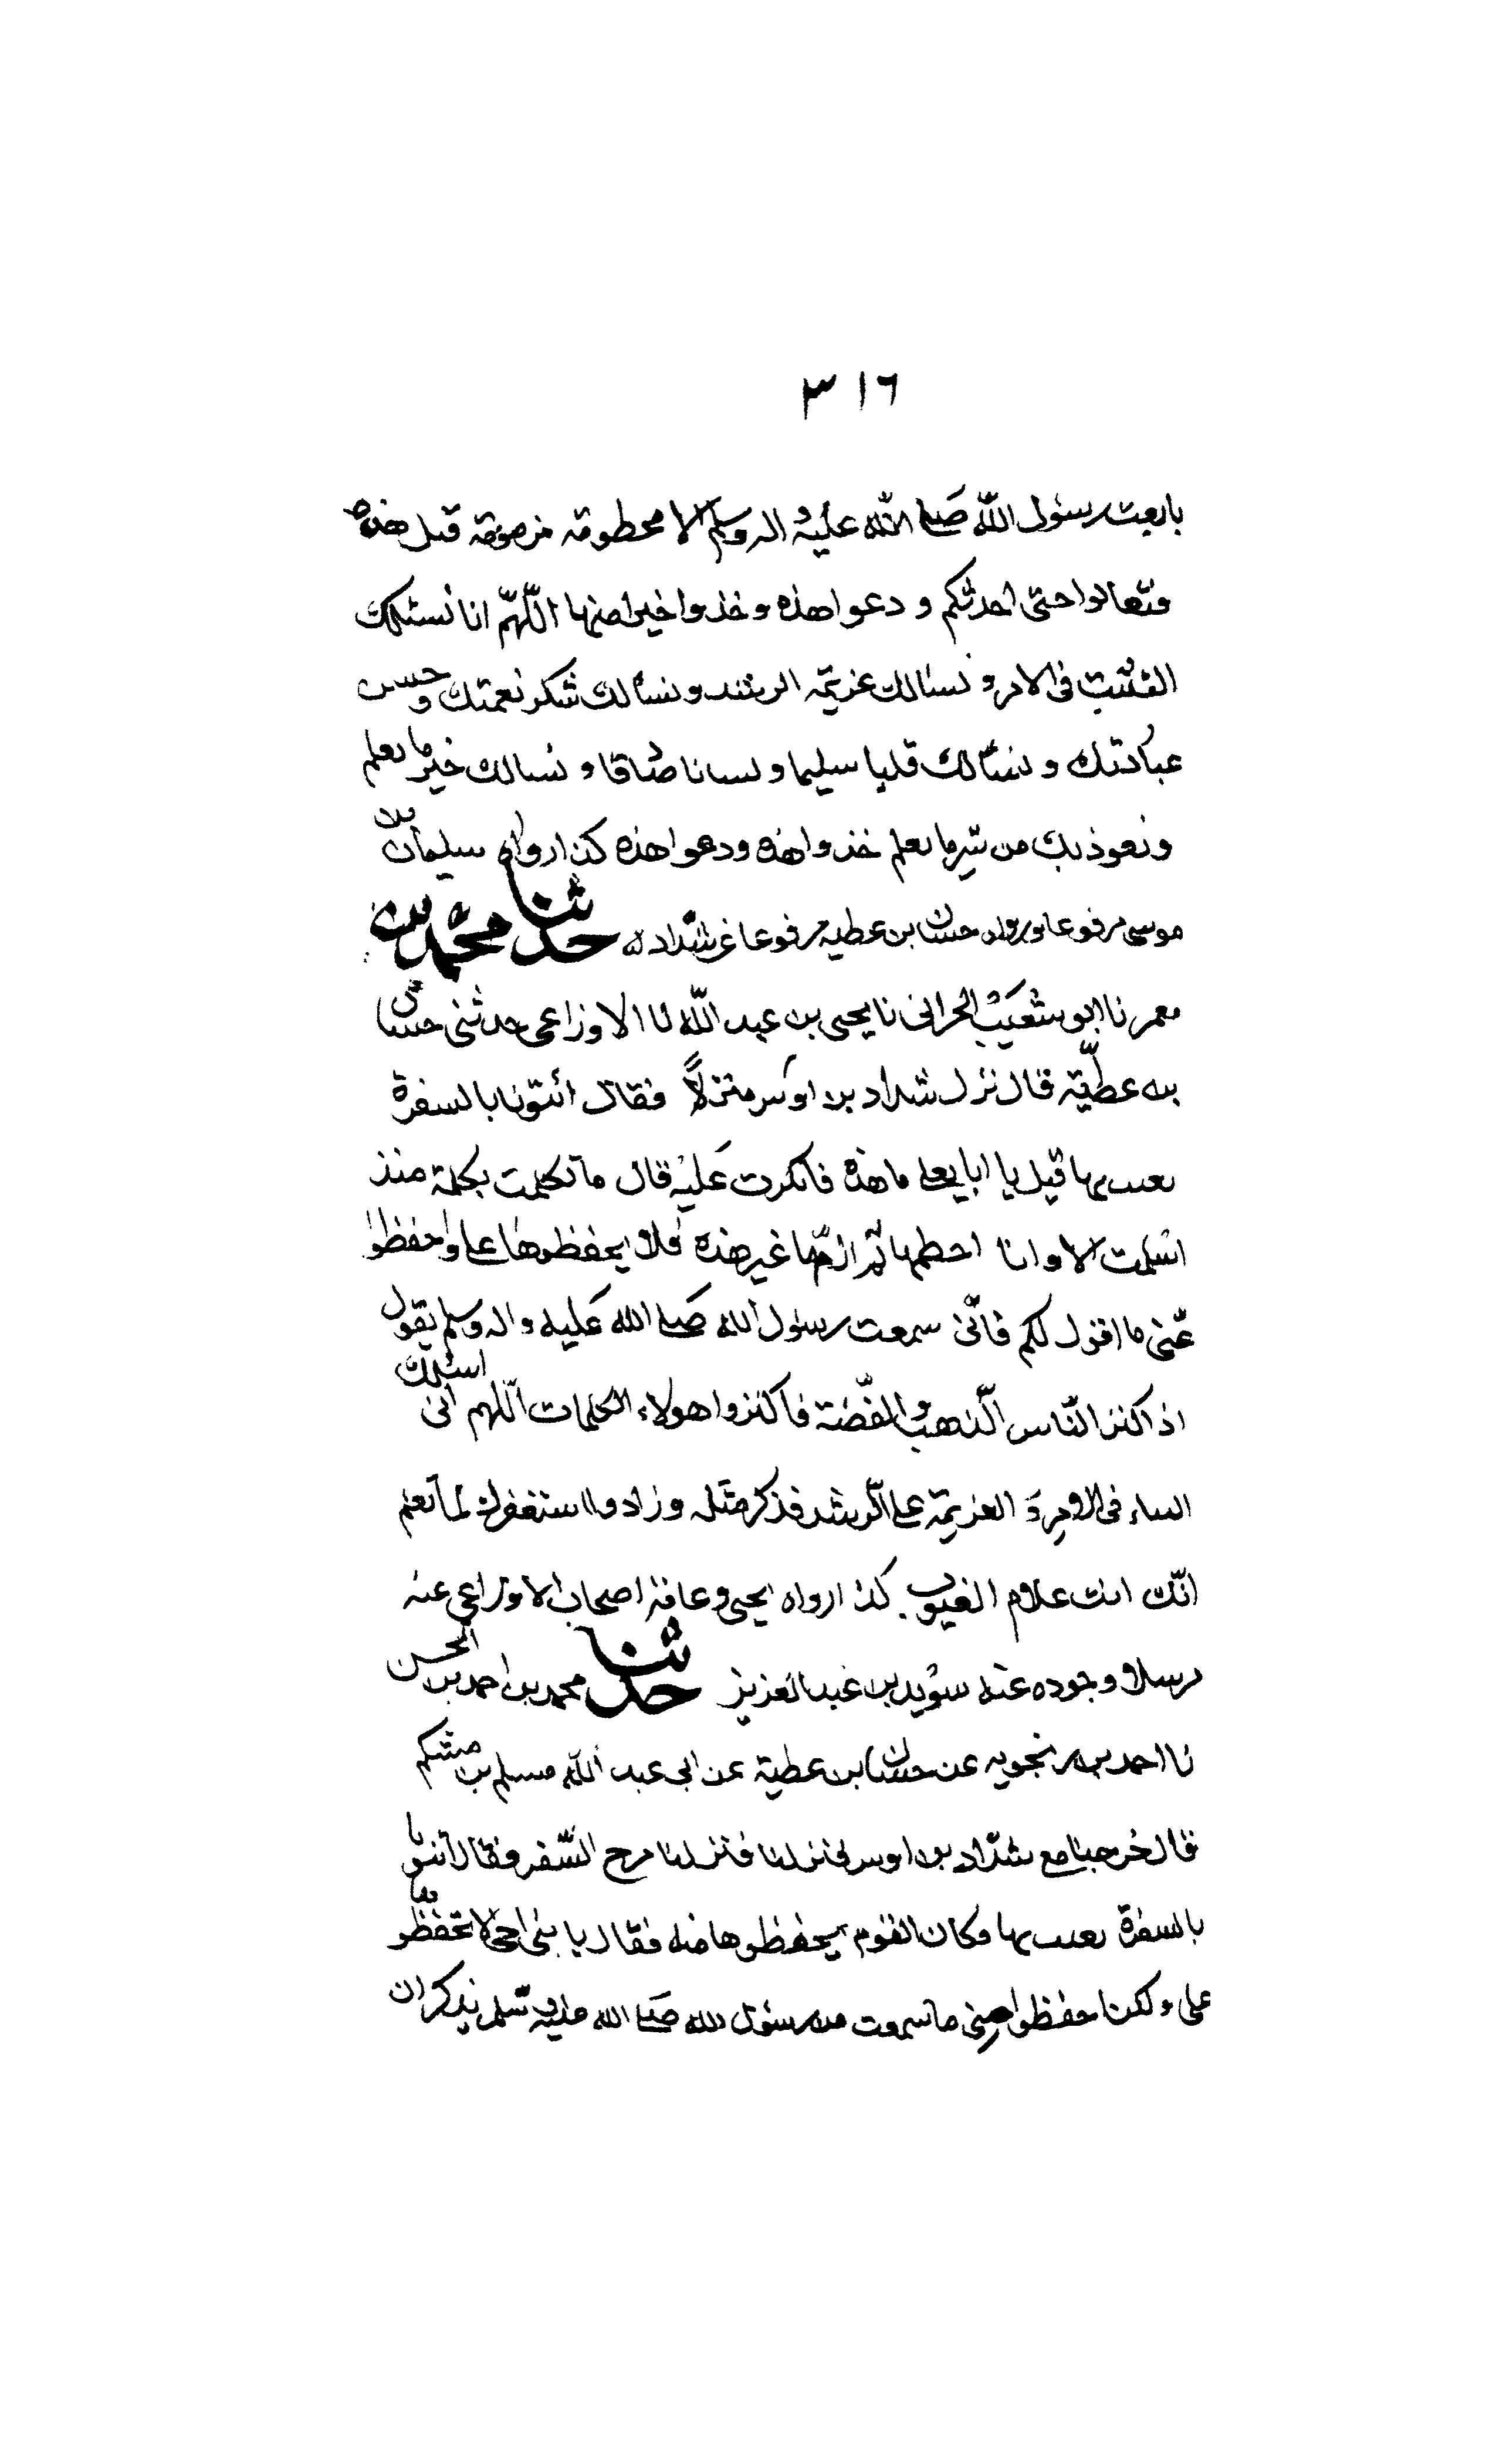 ٣١٦
بايعت رسول الله صلى الله عليه واله وسلم الا محطومة مزمومة قبل هذه
فتعالوا حتى احدثكم و دعوا هذه و خذوا خيرا منها اللهم انا نسئلك
التثبت فى الامر و نسالك عزيمة الرشد و نسألك شكر نعمتك و حسن
عبادتك و نسألك قلبا سليما و لسانا صادقا و نسالك خير ما تعلم
و نعوذ بك من شر ما تعلم خذوا هذه ودعوا هذه كذا رواه سليمان بن
موسى مرفوعا ورواه حسان بن عطيه مرفوعا عن شداد حدثنا محمد بن
معمر نا ابو شعيب الحرانى نا يحيى بن عبد الله نا الاوزاعى حدثنى حسان
بن عطية قال نزل شداد بن اوس منزلا فقال ائتونا بالسفرة
نعبث بها قيل يا ابا يعلى ما هذه فانكرت عليه قال ما تكلمت بكلمة منذ
اسلمت الا وانا احطمها ثم ازمها غير هذه فلا يحفظوها على واحفظوا
عنى ما اقول لكم فانى سمعت رسول الله صلى الله عليه واله وسلم يقول
اذا كنز الناس الذهب والفضة فاكنزوا هولاء الكلمات اللهم انى اسئلك
الثبات فى الامر و العزيمة على الرشد فذكر مثله وزاد واستغفرك لما تعلم
انك انت علام الغيوب كذا رواه يحيى و عامة اصحاب الاوزاعى عنه
مرسلا وجوده عنه سويد بن عبد العزيز حدثنا محمد بن احمد بن الحسن
نا احمد بن زنجويه عن حسان بن عطية عن ابى عبد الله مسلم بن مشكم
قال خرجنا مع شداد بن اوس فنزلنا مرج الصفر فقال ائتونا
بالسفرة نعبث بها فكان القوم يحفظوها منه فقال يا بنى اخى لا تحفظوها
على ولكن احفظوا منى ما سمعت من رسول الله صلى الله عليه وسلم يذكران